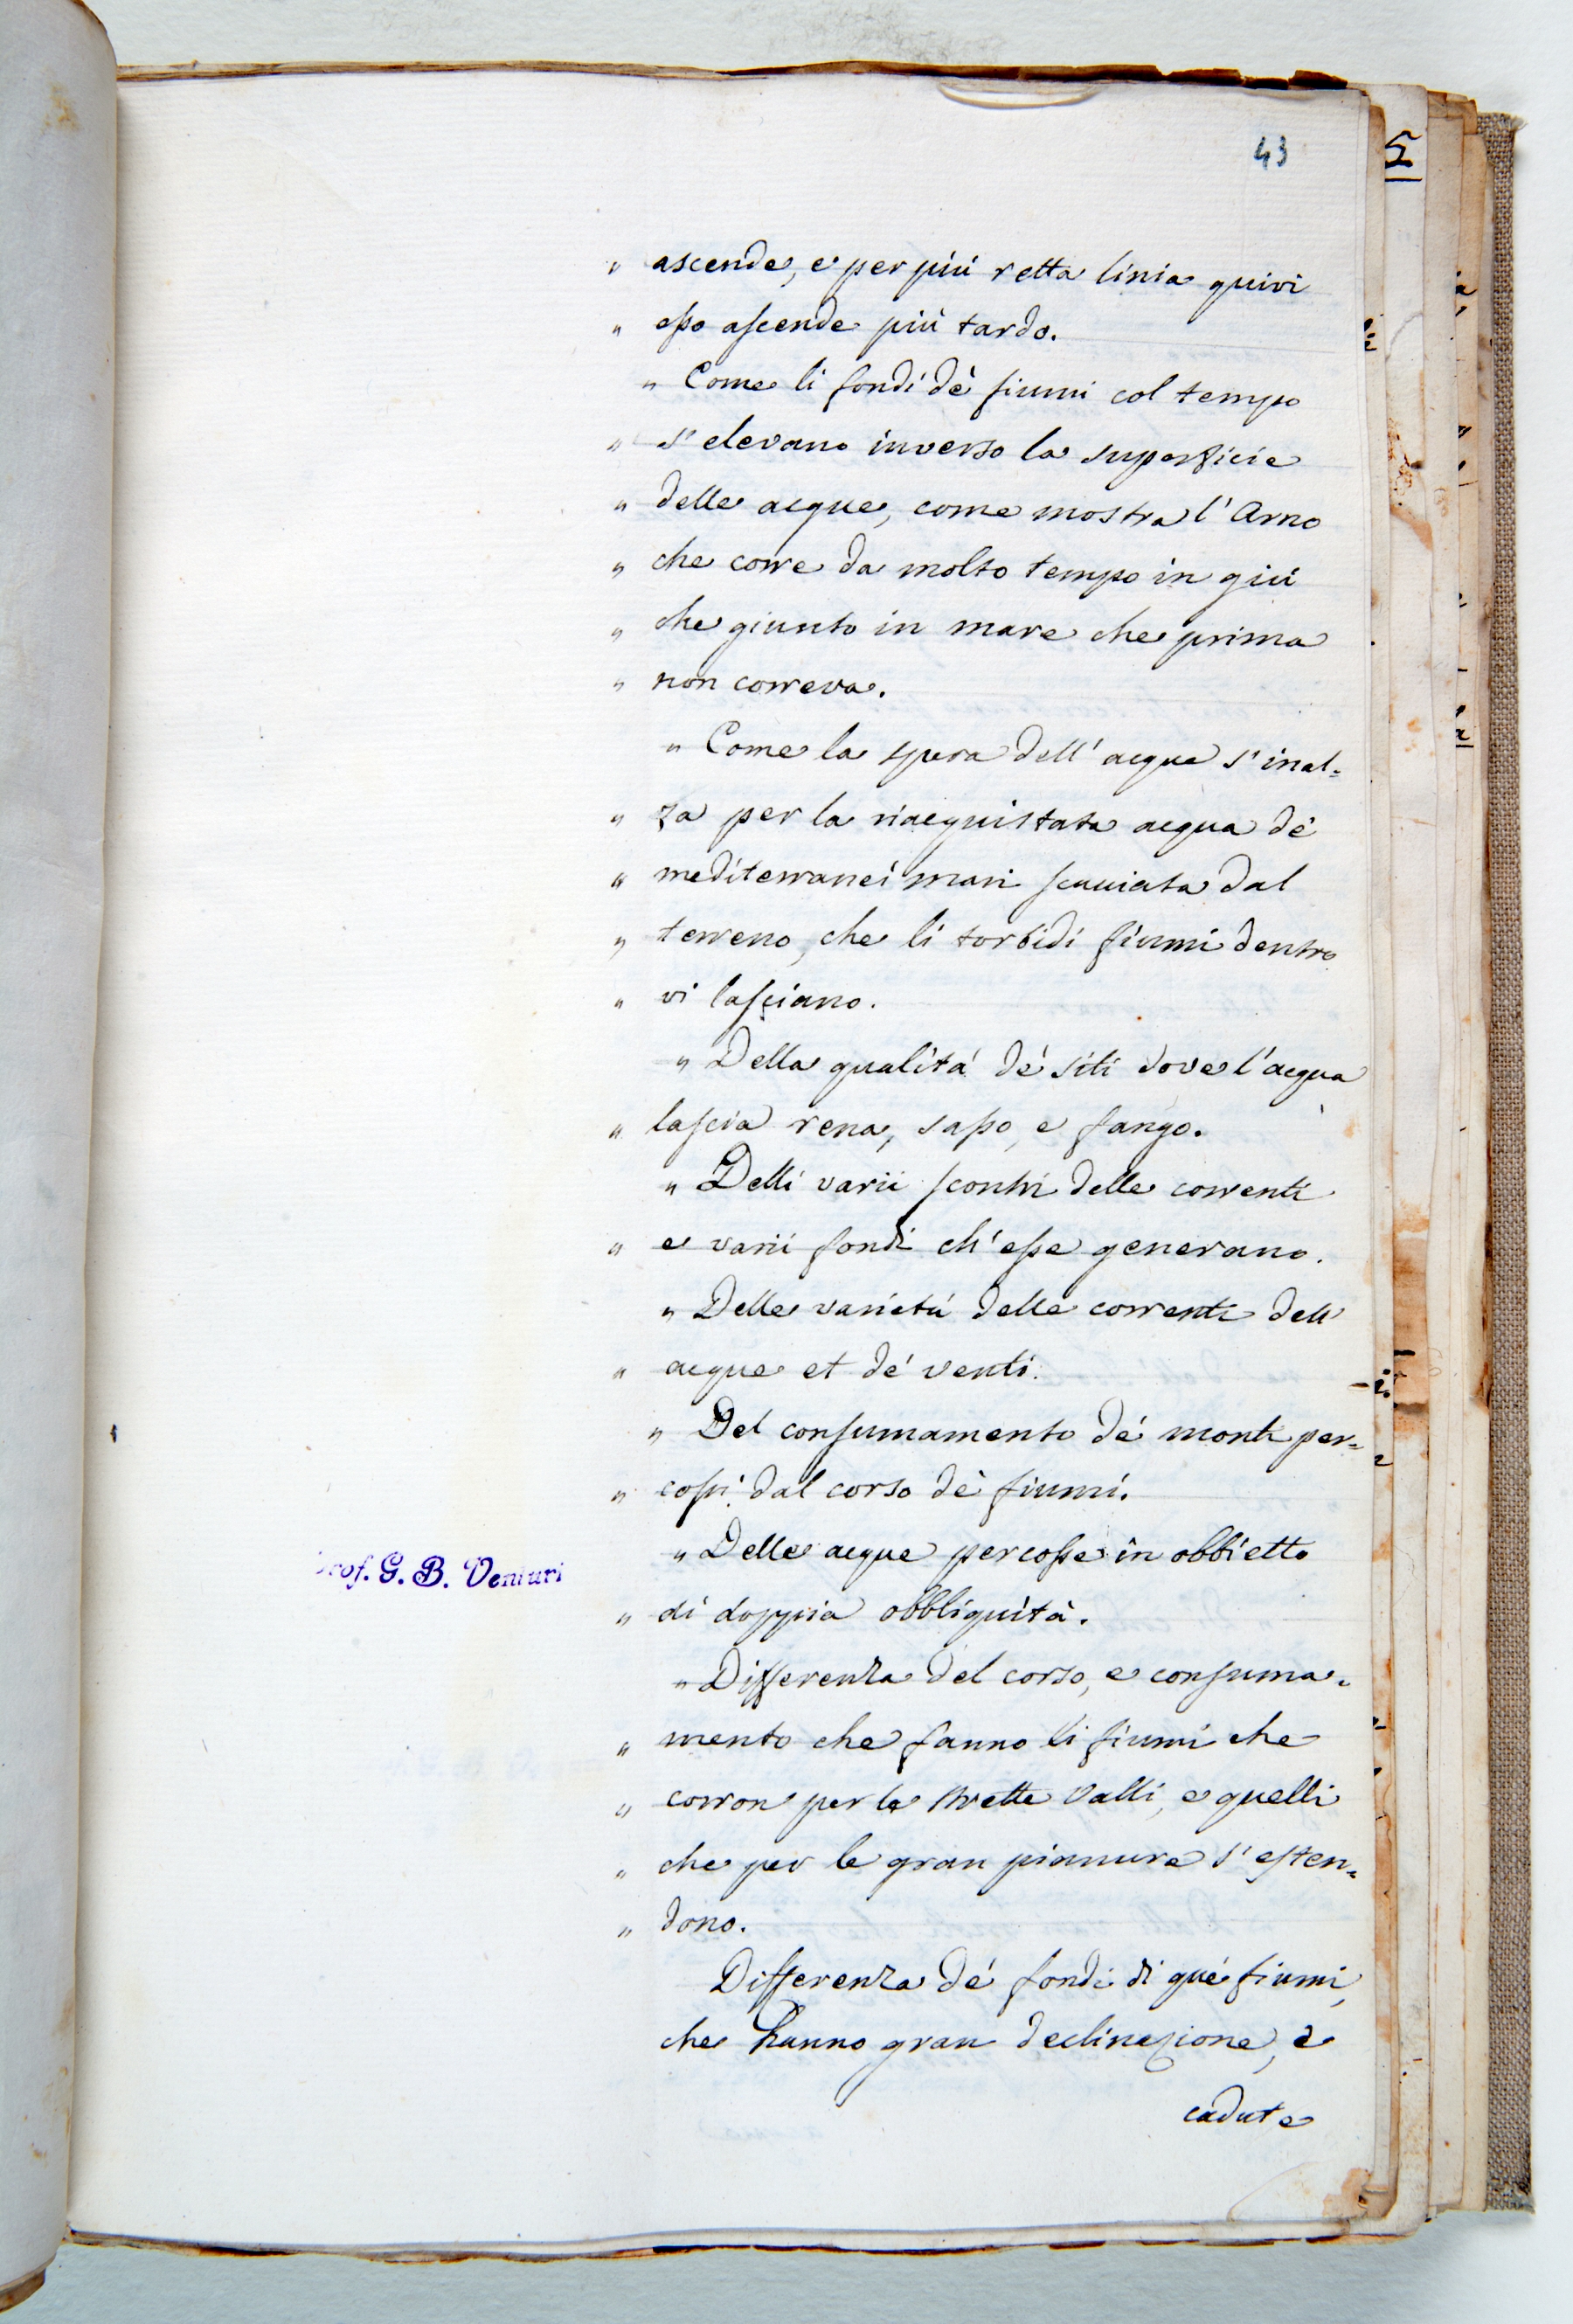 43
" ascende, e per più retta linia quivi
" esso ascende più tardo.
" Come li fondi de' fiumi col tempo
" s'elevano inverso la superficie
" delle acque, come mostra l'Arno
" che corre da molto tempo in giù
" che giunto in mare che prima
" non correva.
" Come la spera dell'acque s'inal=
" za per la riacquistata acqua de'
" mediterranei mari scacciata dal
" terreno, che li torbidi fiumi dentro
" vi lasciano.
" Della qualità de' siti dove l'acqua
" lascia rena, sasso, e fango.
" Delli varii scontri delle correnti
" e varii fondi ch'esse generano.
" Delle varietà delle correnti dell'
" acque et de' venti.
" Del consumamento de' monti per=
" cossi dal corso de' fiumi.
" Delle acque percosse in obbietto
Prof. G. B. Venturi
" di doppia obbliquità.
" Differenza del corso, e consuma=
" mento che fanno li fiumi che
" corron per le strette valli, e quelli
" che per le gran pianure s'esten=
" dono.
Differenza de' fondi di que' fiumi,
che hanno gran declinazione, e
cadute